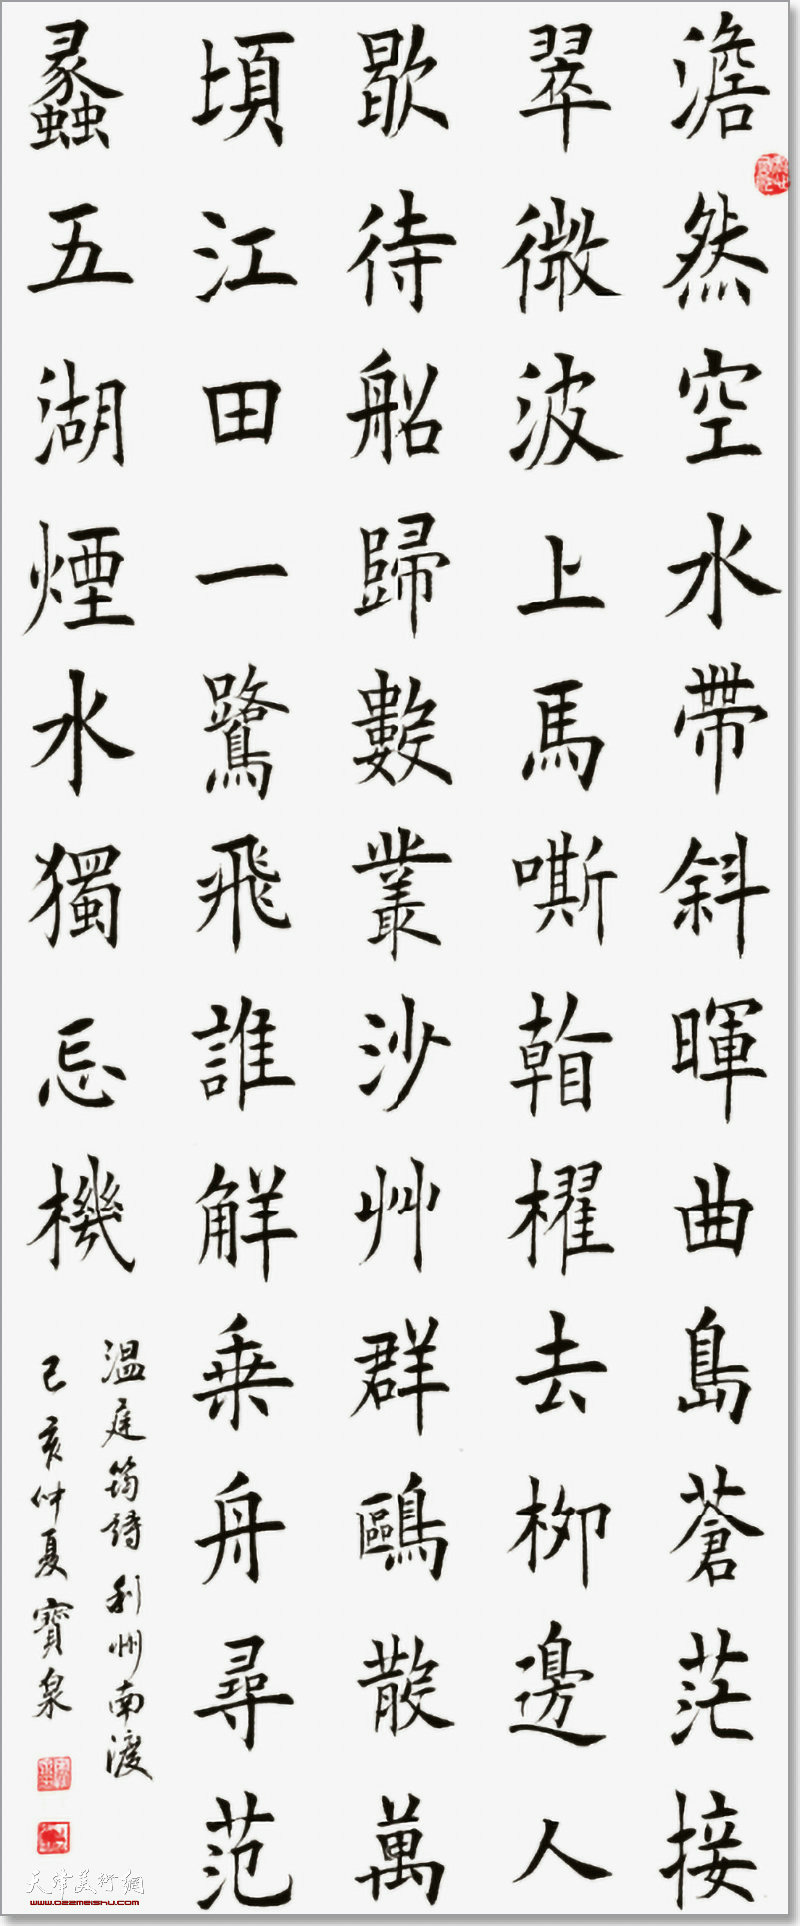 澹然空水帶斜暉曲島蒼茫接
翠微波上馬嘶𣄃櫂去柳邊人
歇待船歸數叢沙艸群鷗散萬
頃江田一鷺飛誰解乗舟尋范
蠡五湖煙水獨忘機
溫庭筠詩利州南渡
己亥仲夏寶泉
天津美術網
www.022meishu.com